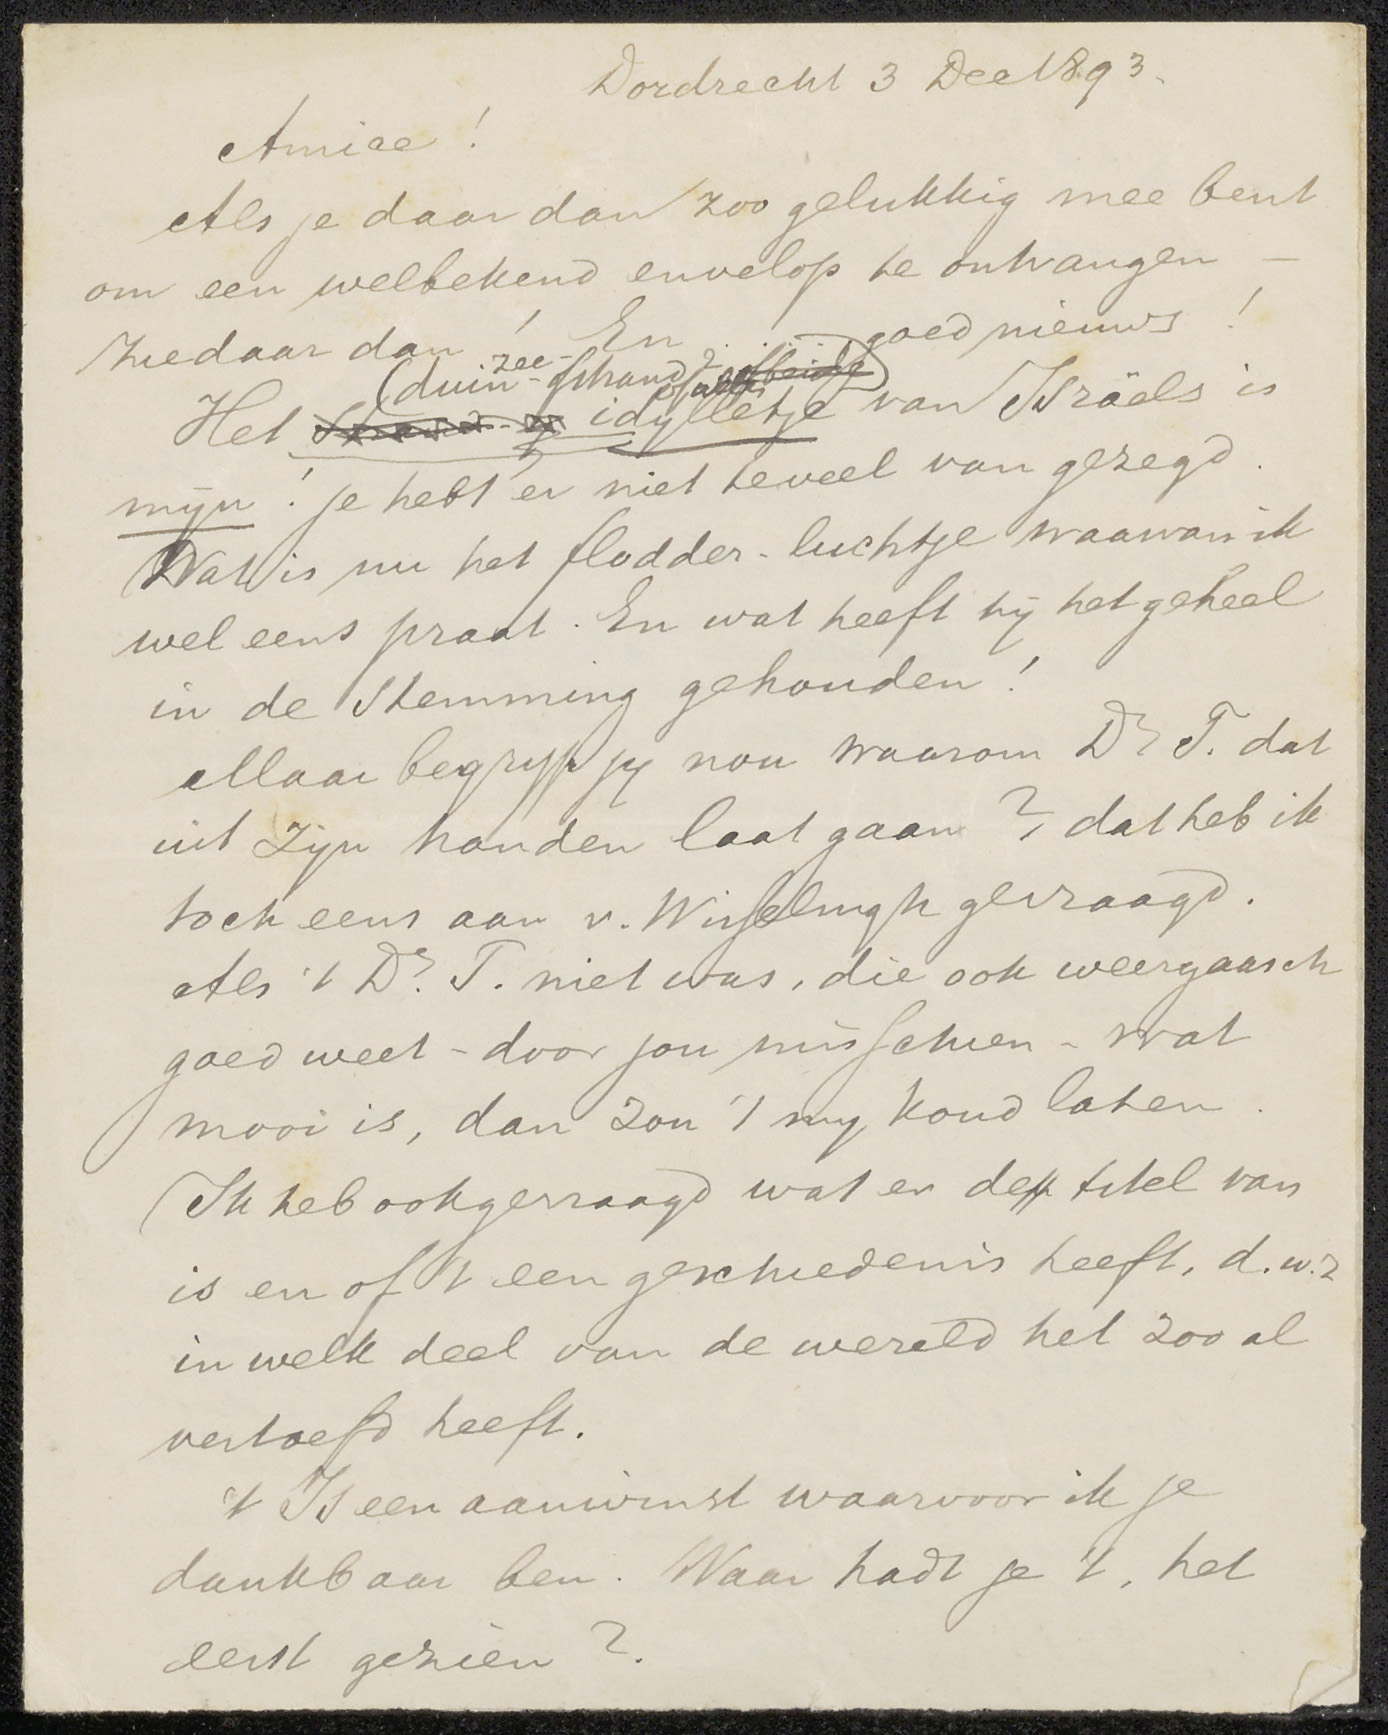 Dordrecht 3 Dec 1893.
Amice!
Als je daar dan zoo gelukkig mee bent
om een welbekend envelop te ontvangen —
ziedaar dan! En ..... goed nieuws!
(duin- zee- strand?
Het idylletje van Israëls is
mijn! je hebt er niet teveel van gezegd.
Wat is nu het flodder-luchtje waarvan ik
wel eens praat. En wat heeft hij het geheel
in de stemming gehouden!
Maar begrijp jij nou waarom Dr T. dat
uit zijn handen laat gaan?, dat heb ik
toch eens aan v. Wisselingh gevraagd.
Als 't Dr. T. niet was, die ook weergaasch
goed weet - door jou misschien - wat
mooi is, dan zou 't mij koud laten.
Ik heb ook gevraagd wat er de titel van
is en of 't een geschiedenis heeft, d.w.z
in welk deel van de wereld het zoo al
vertoefd heeft.
't Is een aanwinst waarvoor ik je
dankbaar ben. Waar hadt je 't, het
eerst gezien?.